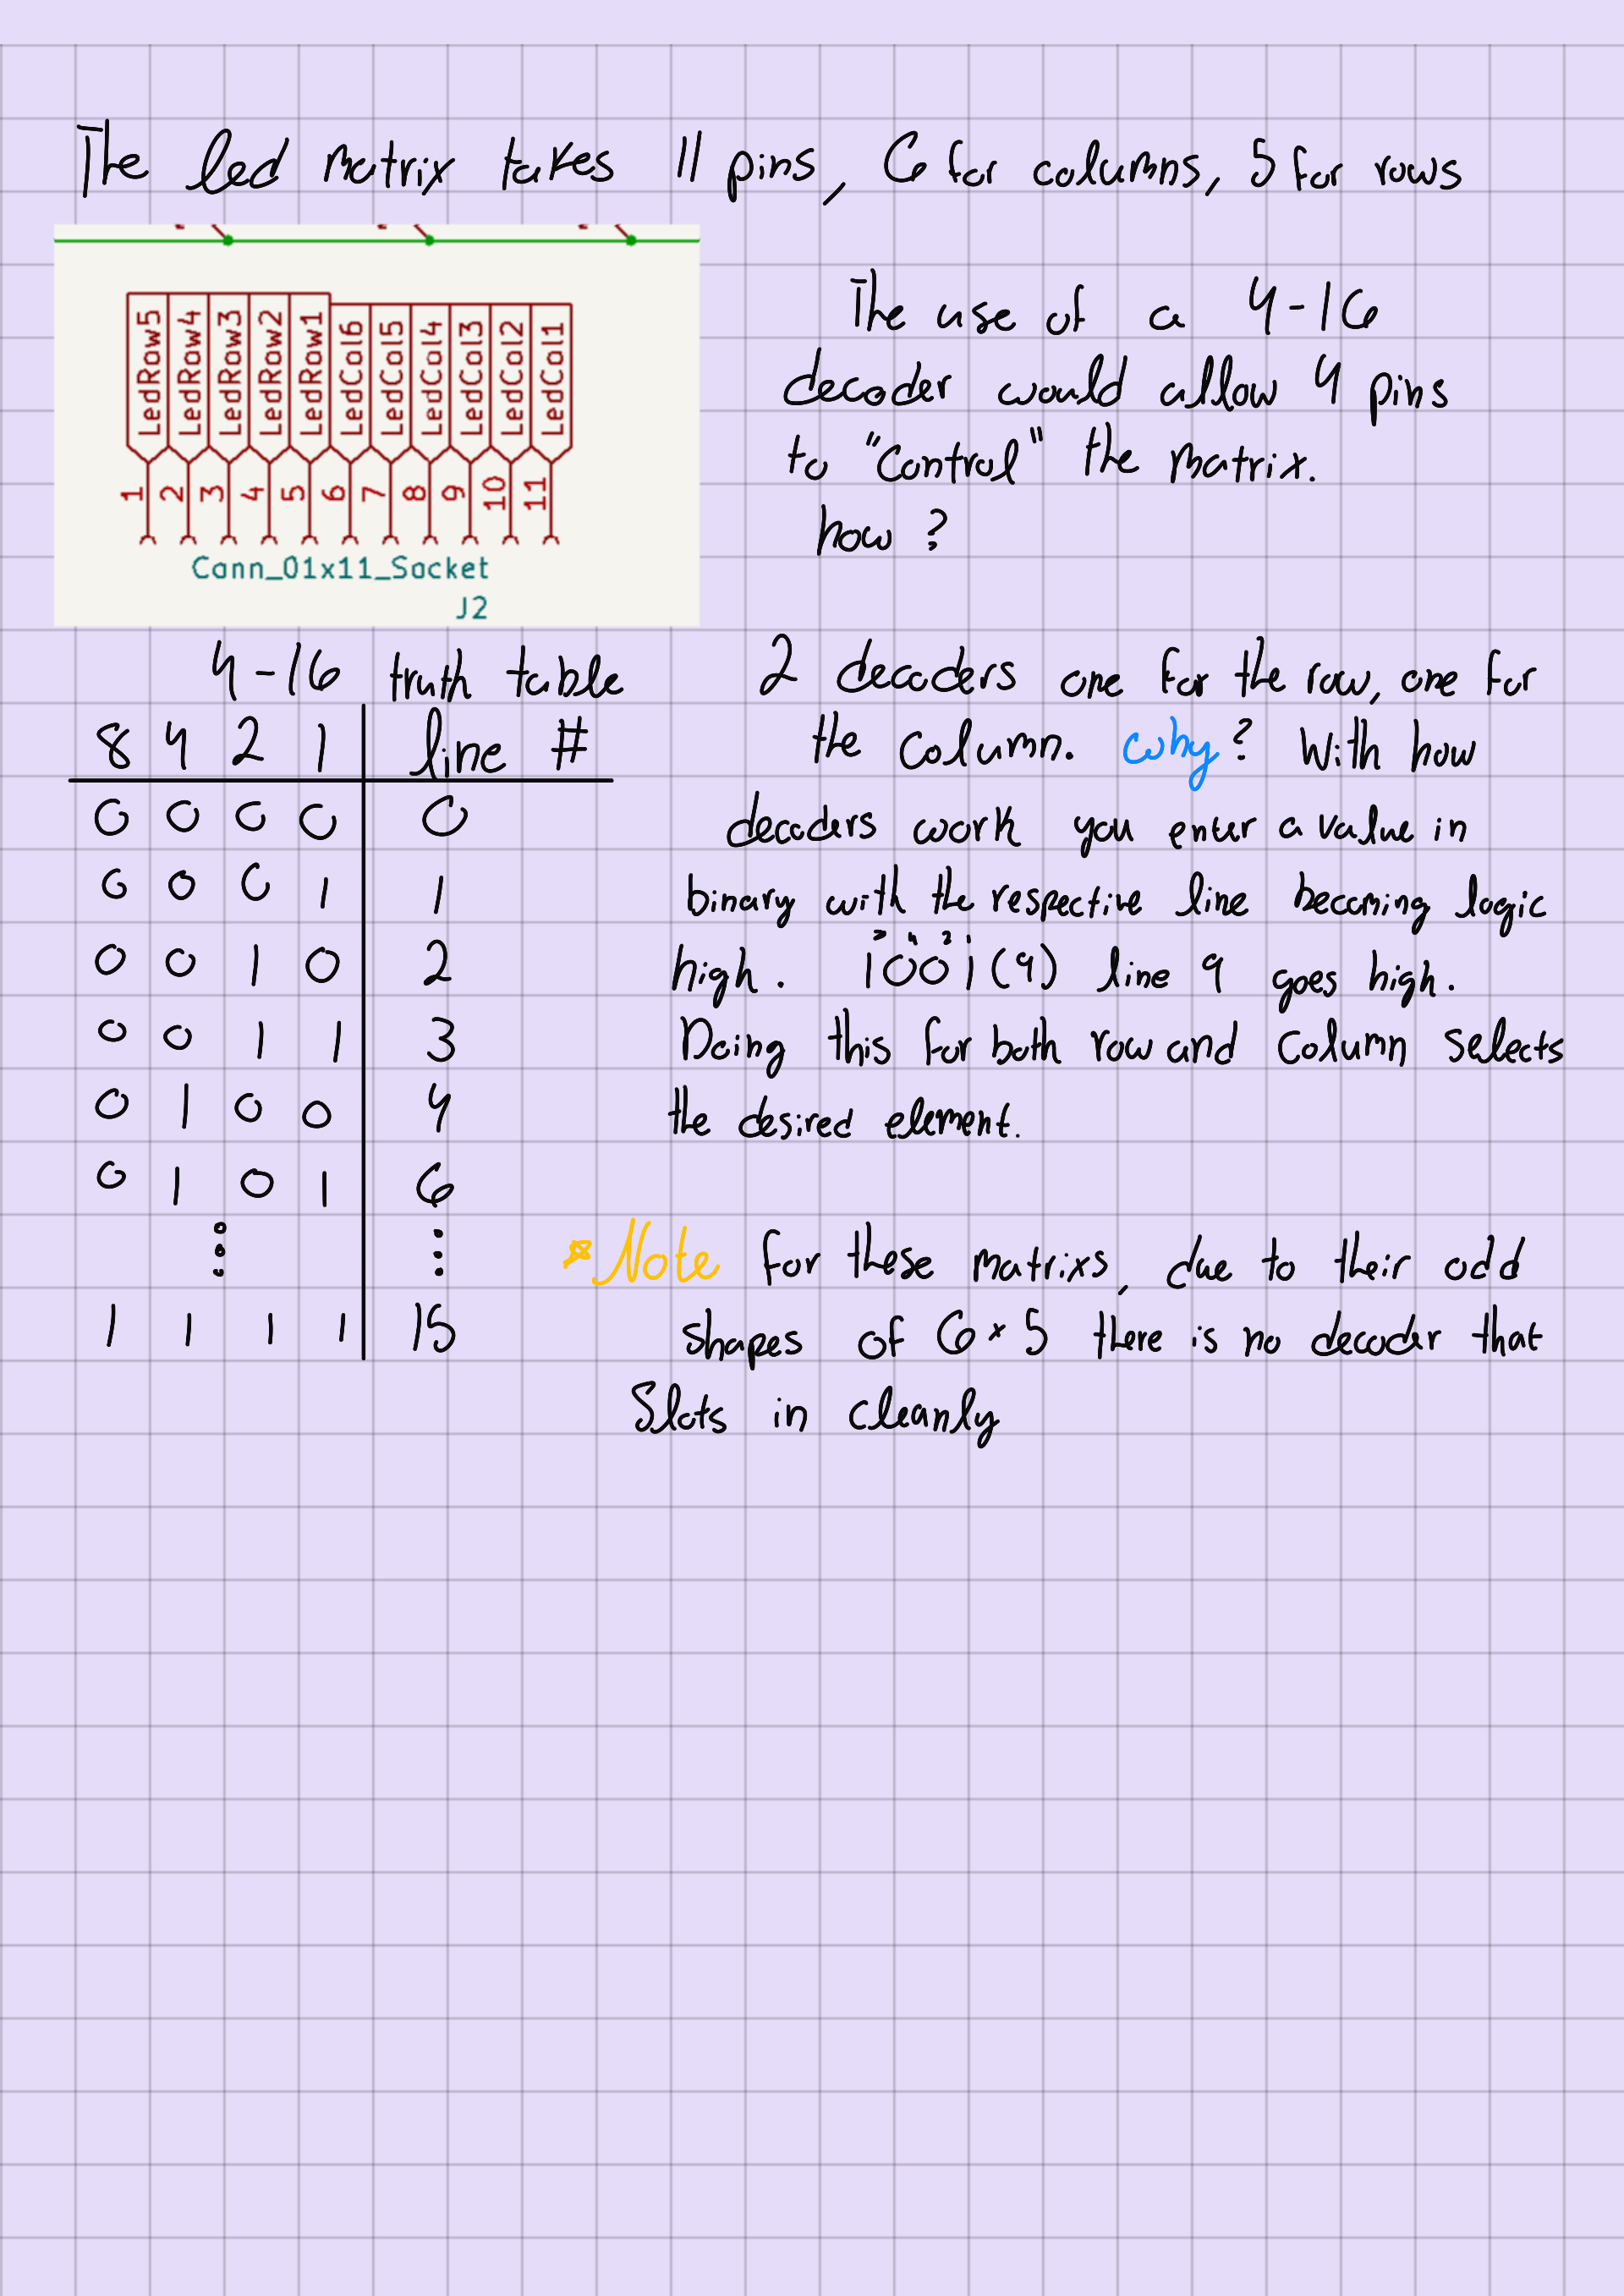 The led matrix takes 11 pins, 6 for columns, 5 for rows
LedRow5
LedRow4
LedRow3
LedRow2
LedRow1
LedCol6
LedCol5
LedCol4
LedCol3
LedCol2
LedCol1
1 2 3 4 5 6 7 8 9 10 11
Conn_01x11_Socket
J2
The use of a 4-16
decoder would allow 4 pins
to "control" the matrix.
how?
4-16 truth table
8 4 2 1 line #
0 0 0 0 0
0 0 0 1 1
0 0 1 0 2
0 0 1 1 3
0 1 0 0 4
0 1 0 1 6
⋮ ⋮
1 1 1 1 15
2 decoders one for the row, one for
the column. why? With how
decoders work you enter a value in
binary with the respective line becoming logic
high. 1001(9) line 9 goes high.
Doing this for both row and column selects
the desired element.
*Note for these matrixs, due to their odd
shapes of 6x5 there is no decoder that
Slots in cleanly